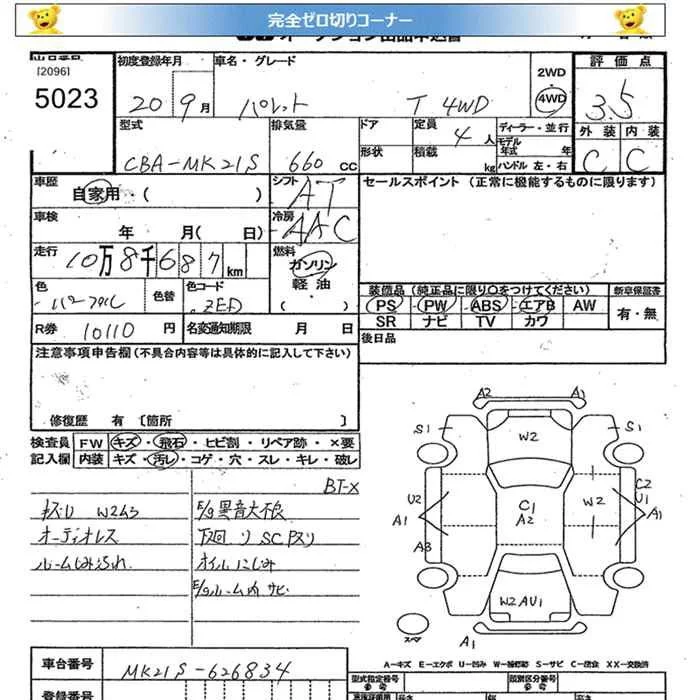 完全ゼロ切りコーナー
[2096]
5023
初度登録年月
20 9月
車名・グレード
パレット T 4WD
2WD
・
4WD
評価点
3.5
外装 内装
C C
型式
CBA-MK21S
排気量
660 CC
ドア
形状
定員
4人
積載
kg
ディーラー・並行
モデル
年式 年
ハンドル 左・右
車歴
自家用・( )
シフト
AT
車検
年 月( 日)
冷房
AAC
走行
10万8千687km
燃料
ガソリン
軽油
・( )
セールスポイント (正常に機能するものに限ります)
色
パープル
色替
色コード
ZED
R券 10110 円
名変通知期限 月 日
装備品 (純正品に限り○をつけてください)
PS PW ABS エアB AW
SR ナビ TV カワ
新車保証書
有・無
後日品
注意事項申告欄(不具合内容等は具体的に記入して下さい)
修復歴 有 〔箇所 〕
検査員
記入欄
FW キズ・飛石・ヒビ割・リペア跡・×要
内装 キズ・汚レ・コゲ・穴・スレ・キレ・破レ
BT-X
キズU W2A3
オーディオレス
ルームしみ汚れ
E/g異音大不良
下廻り SC Pスリ
オイルにじみ
E/gルーム内サビ
A2 A1
S1 W2 S1
U2 A1 A3
C1
A2
W2
C2
U1
A1
W2 AU1
スペア
A1
A-キズ E-エクボ U-凹み W-補修跡 S-サビ C-腐食 XX-交換済
車台番号
MK21S-626834
登録番号
型式指定番号
参考
類別区分番号
参考